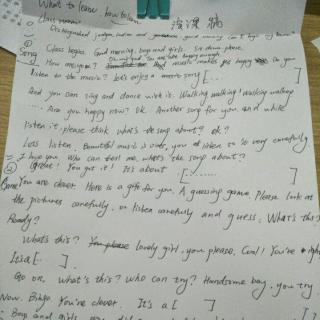 What to learn, how to learn
Class begins. Good morning, boys and girls. Sit down please.
Song How are you?
listen to the music? Let's enjoy a music song [
And you can sing and dance with it. Walking walking! walking walking
Are you happy now? Ok. Another song for you and while
listen it, please think what's the song about? ok?
Less listen, Beautiful music is over, you listen so so very carefully.
I love you. Who can tell me, what's the song about?
Great! You got it! It's about [......]
Game You are clever. Here is a gift for you. A guessing game. Please look at
the pictures carefully, or listen carefully and guess, What's this
Ready?
What's this? lovely girl, you please, Cool! You're right
It's a [ ].
Go on, what's this? Who can try? Handsome boy, you try
Now. Bingo You're clever. It's a [ ]
Boys and girls, you